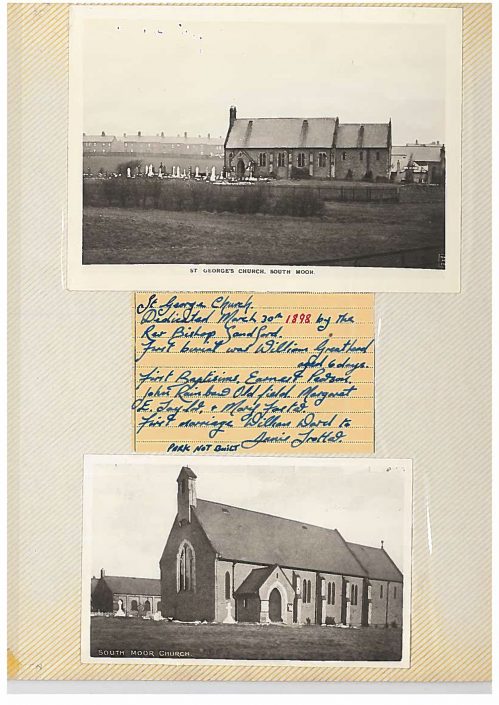 ST GEORGE'S CHURCH, SOUTH MOOR.
St George Church.
Dedicated March 30th 1898 by the
Rev Bishop Sandford.
First burial was William Greatland
aged 6 days.
First Baptisims, Earnest Pearson,
John Rainbow Oldfield. Margaret
E. Taylor, & Mary Foster.
First marriage William Ward to
Annie Trotter.
PARK NOT BUILT
SOUTH MOOR CHURCH.